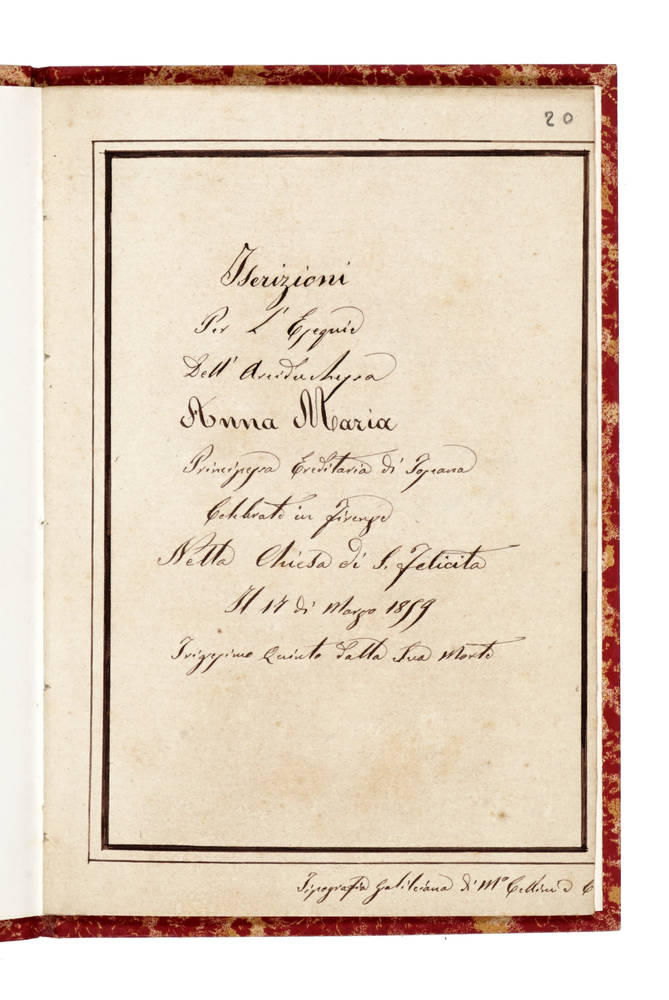 20
Iscrizioni
Per L' Esequie
Dell' Arciduchessa
Anna Maria
Principessa Ereditaria di Toscana
Celebrate in Firenze
Nella Chiesa di S. Felicita
Il 17 di Marzo 1859
Trigesimo Quinto dalla Sua Morte
Tipografia Galileiana di Mº Cellini e C